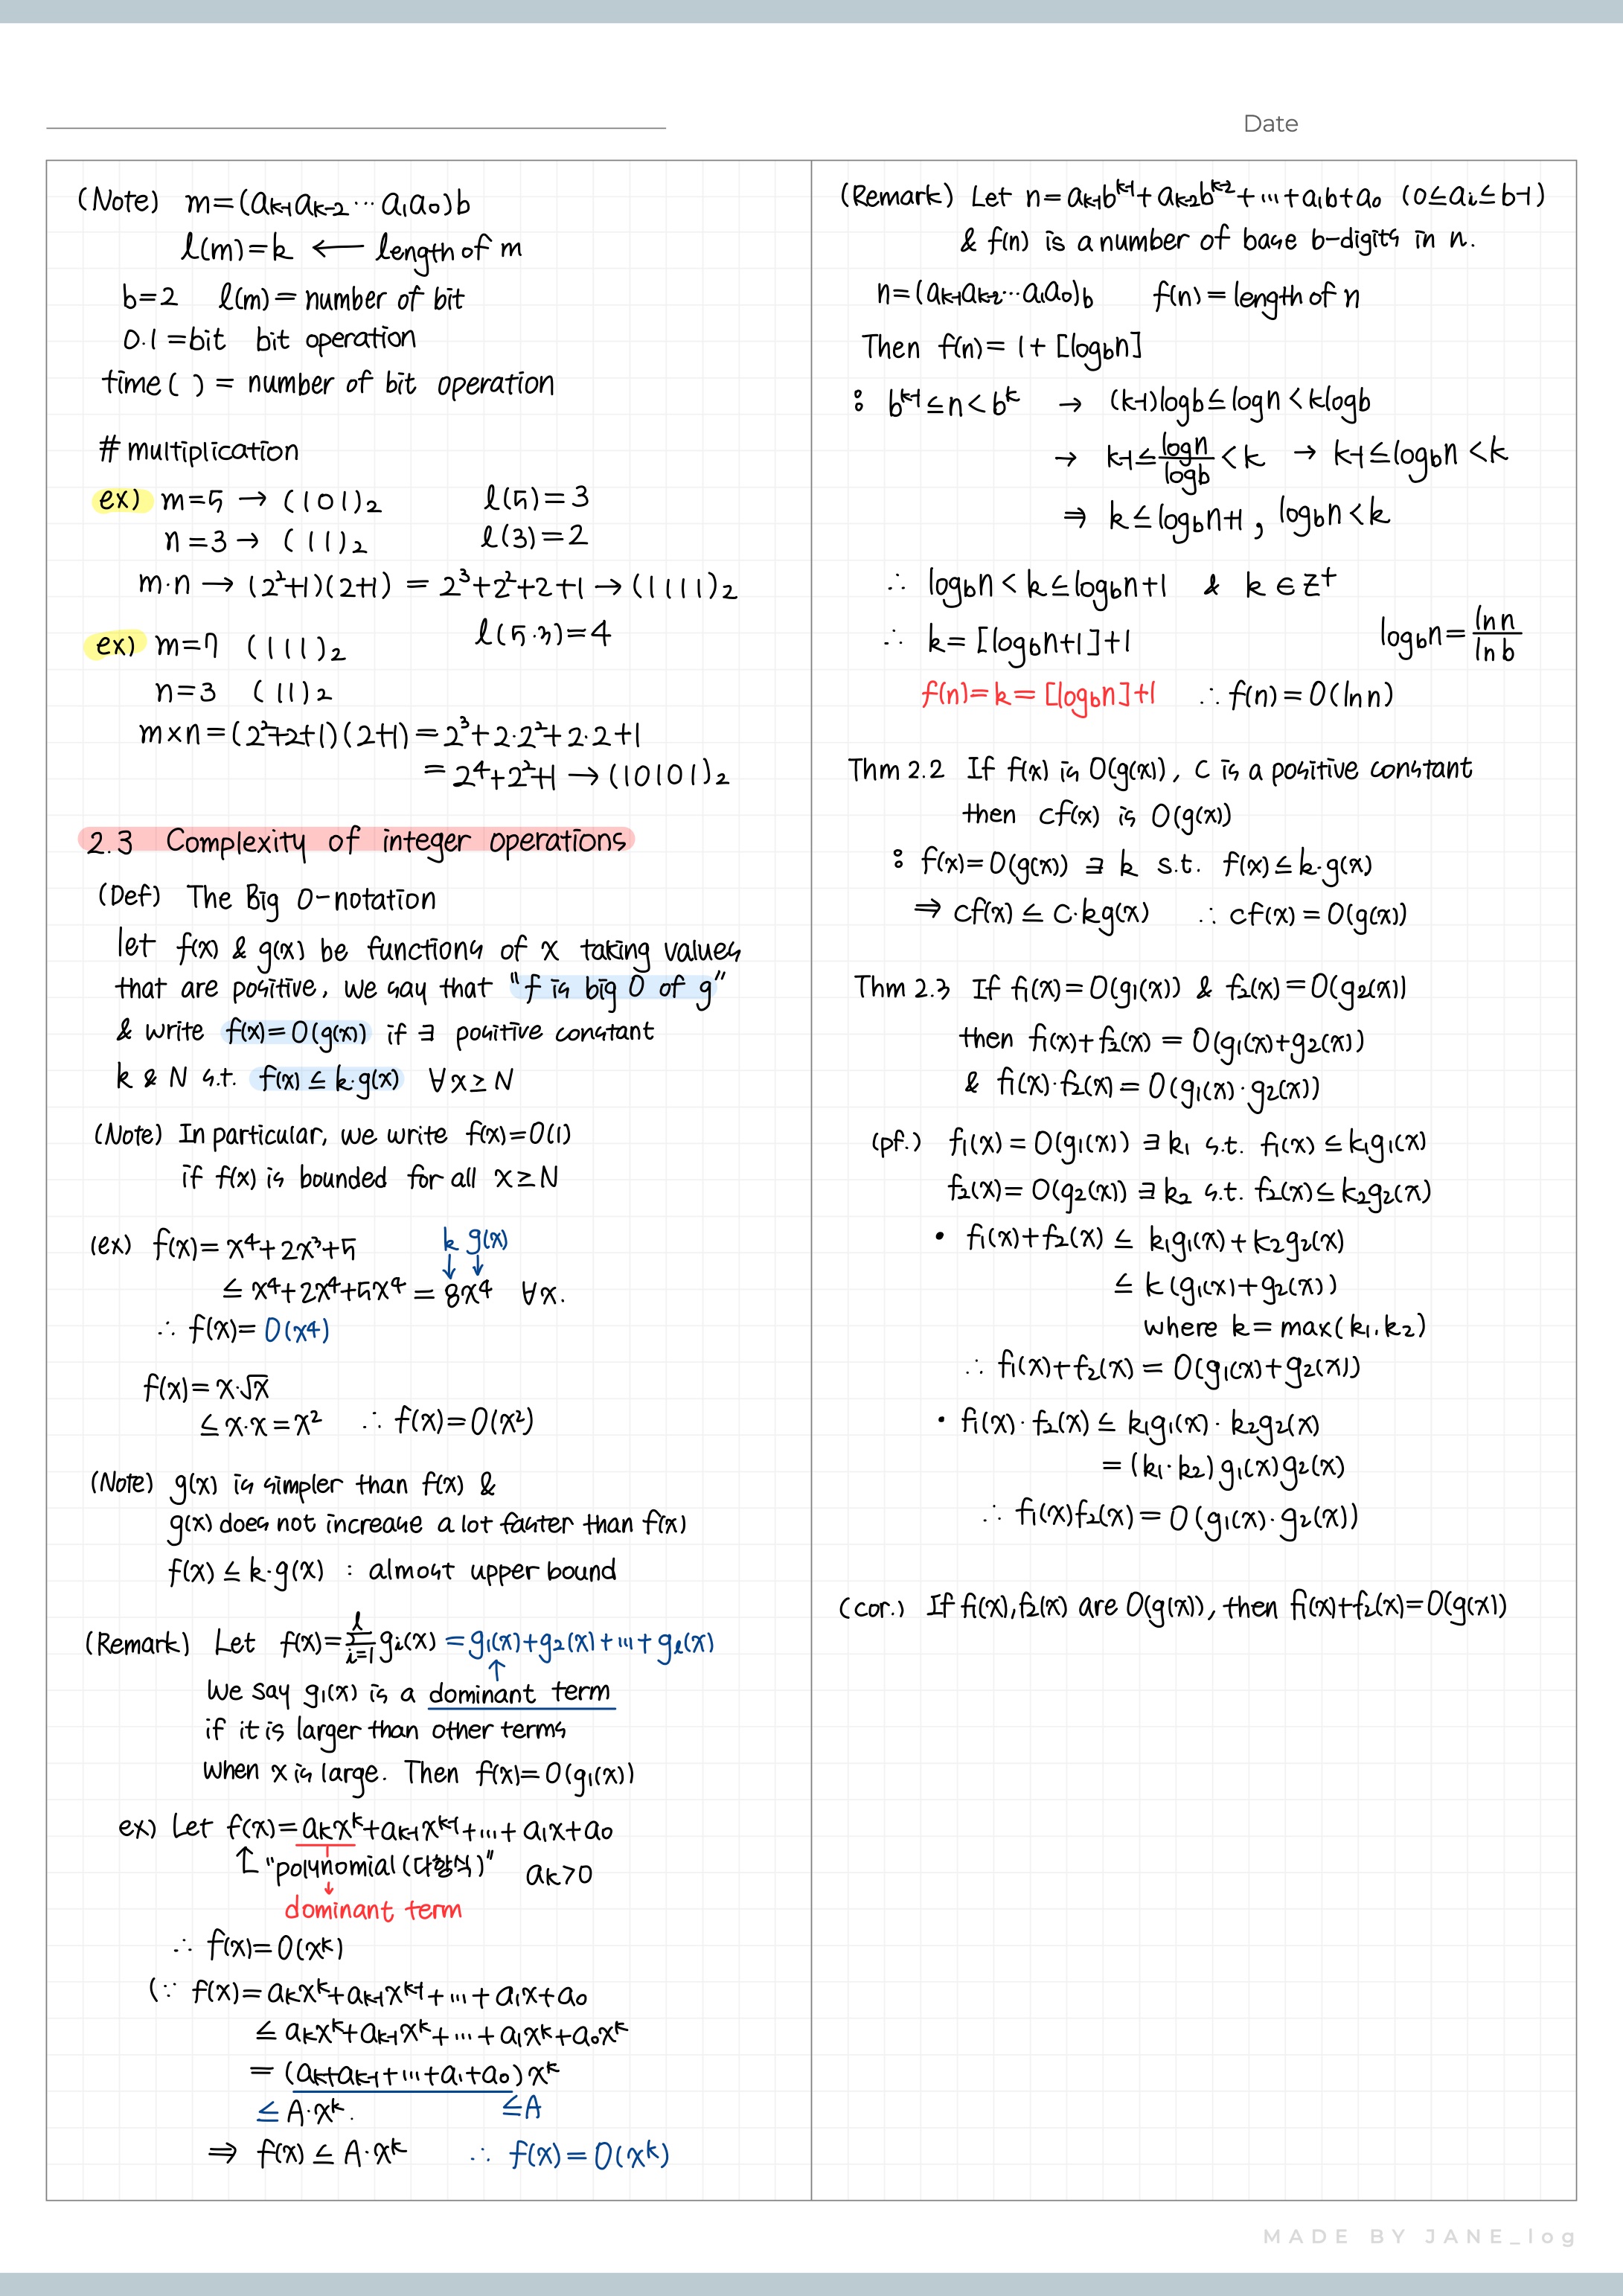 Date
(Note) m=(aₖ₋₁aₖ₋₂⋯a₁a₀)b
l(m)=k ← length of m
b=2 l(m)=number of bit
0.1=bit bit operation
time( ) = number of bit operation
# multiplication
ex) m=5 → (101)₂ l(5)=3
n=3 → (11)₂ l(3)=2
m·n → (2²+1)(2+1) = 2³+2²+2+1 → (1111)₂
l(5·3)=4
ex) m=7 (111)₂
n=3 (11)₂
m×n=(2²+2+1)(2+1)=2³+2·2²+2·2+1
=2⁴+2²+1 → (10101)₂
2.3 Complexity of integer operations
(Def) The Big O-notation
let f(x) & g(x) be functions of x taking values
that are positive, we say that "f is big O of g"
& write f(x)=O(g(x)) if ∃ positive constant
k & N s.t. f(x) ≤ k·g(x) ∀x≥N
(Note) In particular, we write f(x)=O(1)
if f(x) is bounded for all x≥N
(ex) f(x)=x⁴+2x³+5 k g(x)
↓ ↓
≤ x⁴+2x⁴+5x⁴ = 8x⁴ ∀x.
∴ f(x)= O(x⁴)
f(x)=x·√x
≤x·x=x² ∴ f(x)=O(x²)
(Note) g(x) is simpler than f(x) &
g(x) does not increase a lot faster than f(x)
f(x) ≤ k·g(x) : almost upper bound
(Remark) Let f(x)=∑ᵢ₌₁ˡ gᵢ(x) =g₁(x)+g₂(x)+⋯+gₗ(x)
↑
We say g₁(x) is a dominant term
if it is larger than other terms
when x is large. Then f(x)=O(g₁(x))
ex) Let f(x)=aₖxᵏ+aₖ₋₁xᵏ⁻¹+⋯+a₁x+a₀
↑ "polynomial(다항식)" aₖ>0
↓
dominant term
∴ f(x)=O(xᵏ)
(∵ f(x)=aₖxᵏ+aₖ₋₁xᵏ⁻¹+⋯+a₁x+a₀
≤ aₖxᵏ+aₖ₋₁xᵏ+⋯+a₁xᵏ+a₀xᵏ
= (aₖ+aₖ₋₁+⋯+a₁+a₀)xᵏ
≤ A·xᵏ. ≤A
⇒ f(x) ≤ A·xᵏ ∴ f(x)=O(xᵏ)
(Remark) Let n=aₖ₋₁bᵏ⁻¹+aₖ₋₂bᵏ⁻²+⋯+a₁b+a₀ (0≤aᵢ≤b-1)
& f(n) is a number of base b-digits in n.
n=(aₖ₋₁aₖ₋₂⋯a₁a₀)b f(n)=length of n
Then f(n)= 1+[log_b n]
: bᵏ⁻¹≤n<bᵏ → (k-1)logb≤logn<klogb
→ k-1≤logn/logb<k → k-1≤log_b n<k
⇒ k≤log_b n+1, log_b n<k
∴ log_b n<k≤log_b n+1 & k∈Z⁺
∴ k=[log_b n+1]+1 log_b n=ln n/ln b
f(n)=k=[log_b n]+1 ∴f(n)=O(ln n)
Thm 2.2 If f(x) is O(g(x)), C is a positive constant
then cf(x) is O(g(x))
: f(x)=O(g(x)) ∃ k s.t. f(x)≤k·g(x)
⇒ cf(x) ≤ C·kg(x) ∴ cf(x)=O(g(x))
Thm 2.3 If f₁(x)=O(g₁(x)) & f₂(x)=O(g₂(x))
then f₁(x)+f₂(x) = O(g₁(x)+g₂(x))
& f₁(x)·f₂(x)=O(g₁(x)·g₂(x))
(pf.) f₁(x)=O(g₁(x)) ∃k₁ s.t. f₁(x)≤k₁g₁(x)
f₂(x)=O(g₂(x)) ∃k₂ s.t. f₂(x)≤k₂g₂(x)
• f₁(x)+f₂(x) ≤ k₁g₁(x)+k₂g₂(x)
≤ k(g₁(x)+g₂(x))
where k=max(k₁,k₂)
∴ f₁(x)+f₂(x) = O(g₁(x)+g₂(x))
• f₁(x)·f₂(x) ≤ k₁g₁(x)·k₂g₂(x)
=(k₁·k₂)g₁(x)g₂(x)
∴ f₁(x)f₂(x)=O(g₁(x)·g₂(x))
(cor.) If f₁(x),f₂(x) are O(g(x)), then f₁(x)+f₂(x)=O(g(x))
MADE BY JANE_log